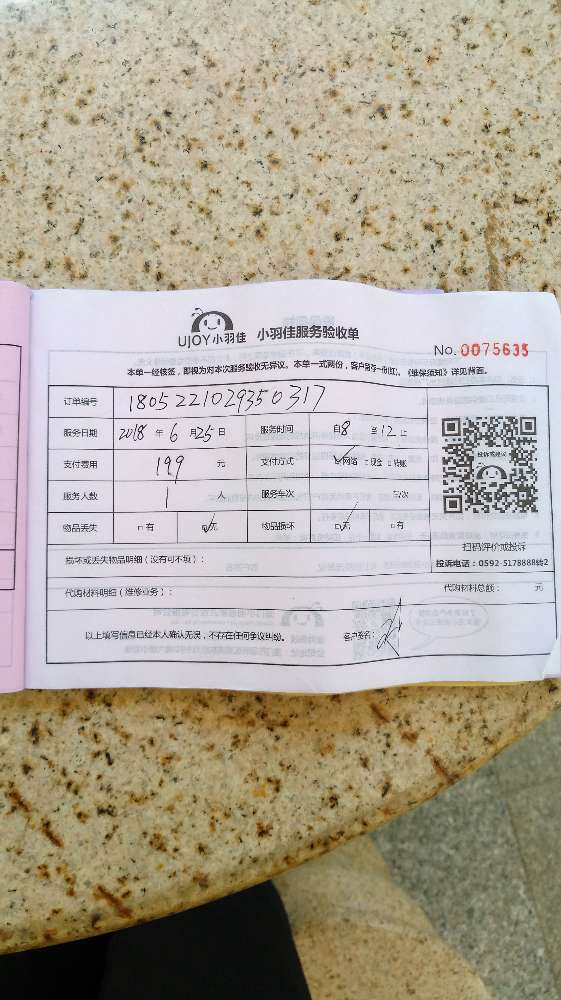 UJOY小羽佳 小羽佳服务验收单
No. 0075635
本单一经核签，即视为对本次服务验收无异议。本单一式两份，客户留存一份(红)。《维保须知》详见背面。
订单编号 1805221029350317
服务日期 2018 年 6 月 25 日 服务时间 自 8 至 12 止
支付费用 199 元 支付方式 ☑网络 □现金 □转账
服务人数 1 人 服务车次 车/次
物品丢失 □有 ☑无 物品损坏 ☑无 □有
投诉或建议
扫码评价或投诉
投诉电话：0592-5178888转2
损坏或丢失物品明细（没有可不填）：
代购材料明细（维修业务）： 代购材料总额： 元
以上填写信息已经本人确认无误，不存在任何争议纠纷。 客户签名：